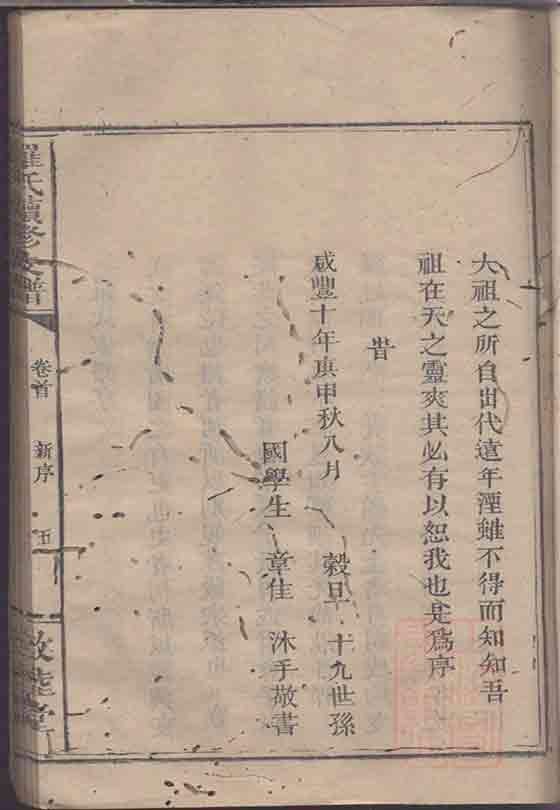 大祖之所自出代遠年湮雖不得而知知吾
祖在天之靈爽其必有以恕我也是爲序
旹
咸豐十年庚申秋八月 穀旦 十九世孫
國學生 章佳 沐手敬書
羅氏續修支譜
卷首 新序 五
敦睦堂